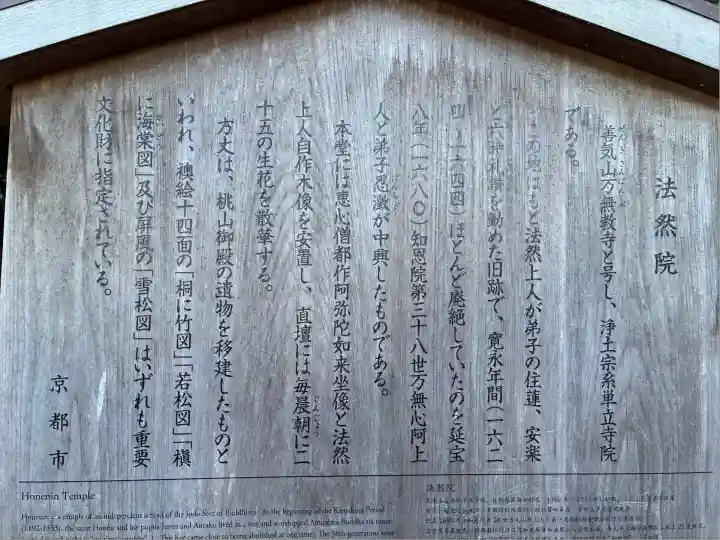 法然院
善気山万無教寺と号し、浄土宗系単立寺院
である。
この地はもと法然上人が弟子の住蓮、安楽
と六時礼讃を勤めた旧跡で、寛永年間(一六二
四〜一六四四)ほとんど廃絶していたのを延宝
八年(一六八〇)知恩院第三十八世万無心阿上
人と弟子忍澂が中興したものである。
本堂には恵心僧都作阿弥陀如来坐像と法然
上人自作木像を安置し、直壇には毎晨朝に二
十五の生花を散華する。
方丈は、桃山御殿の遺物を移建したものと
いわれ、襖絵十四面の「桐に竹図」「若松図」「槇
に海棠図」及び屏風の「雪松図」はいずれも重要
文化財に指定されている。
京都市
Honenin Temple
Honenin is a temple of an independent school of the Jodo Sect of Buddhism. At the beginning of the Kamakura Period
(1192-1333), the saint Honen and his pupils Juren and Anraku lived in
and worshipped Amitabha Buddha six times
it had come close to being abolished at one time. The 38th generation saint
法然院